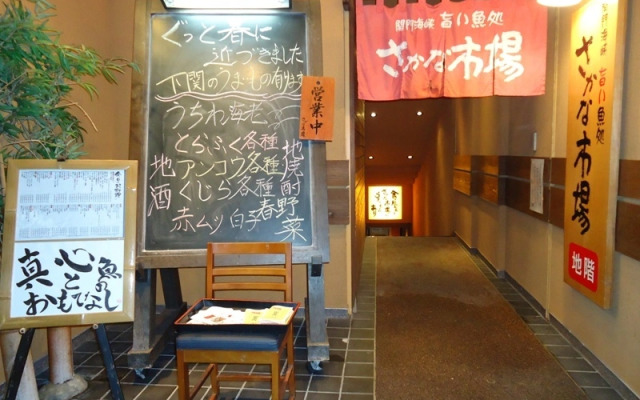 ぐっと春に
近づきました
下関のうまいもの有ります
うちわ海老
とらふく各種
アンコウ各種
くじら各種
赤ムツ 白子
地酒
地焼酎
春野菜
営業中
関門海峡 旨い魚処
さかな市場
関門海峡 旨い魚処
さかな市場
地階
真心と魚の
おもてなし